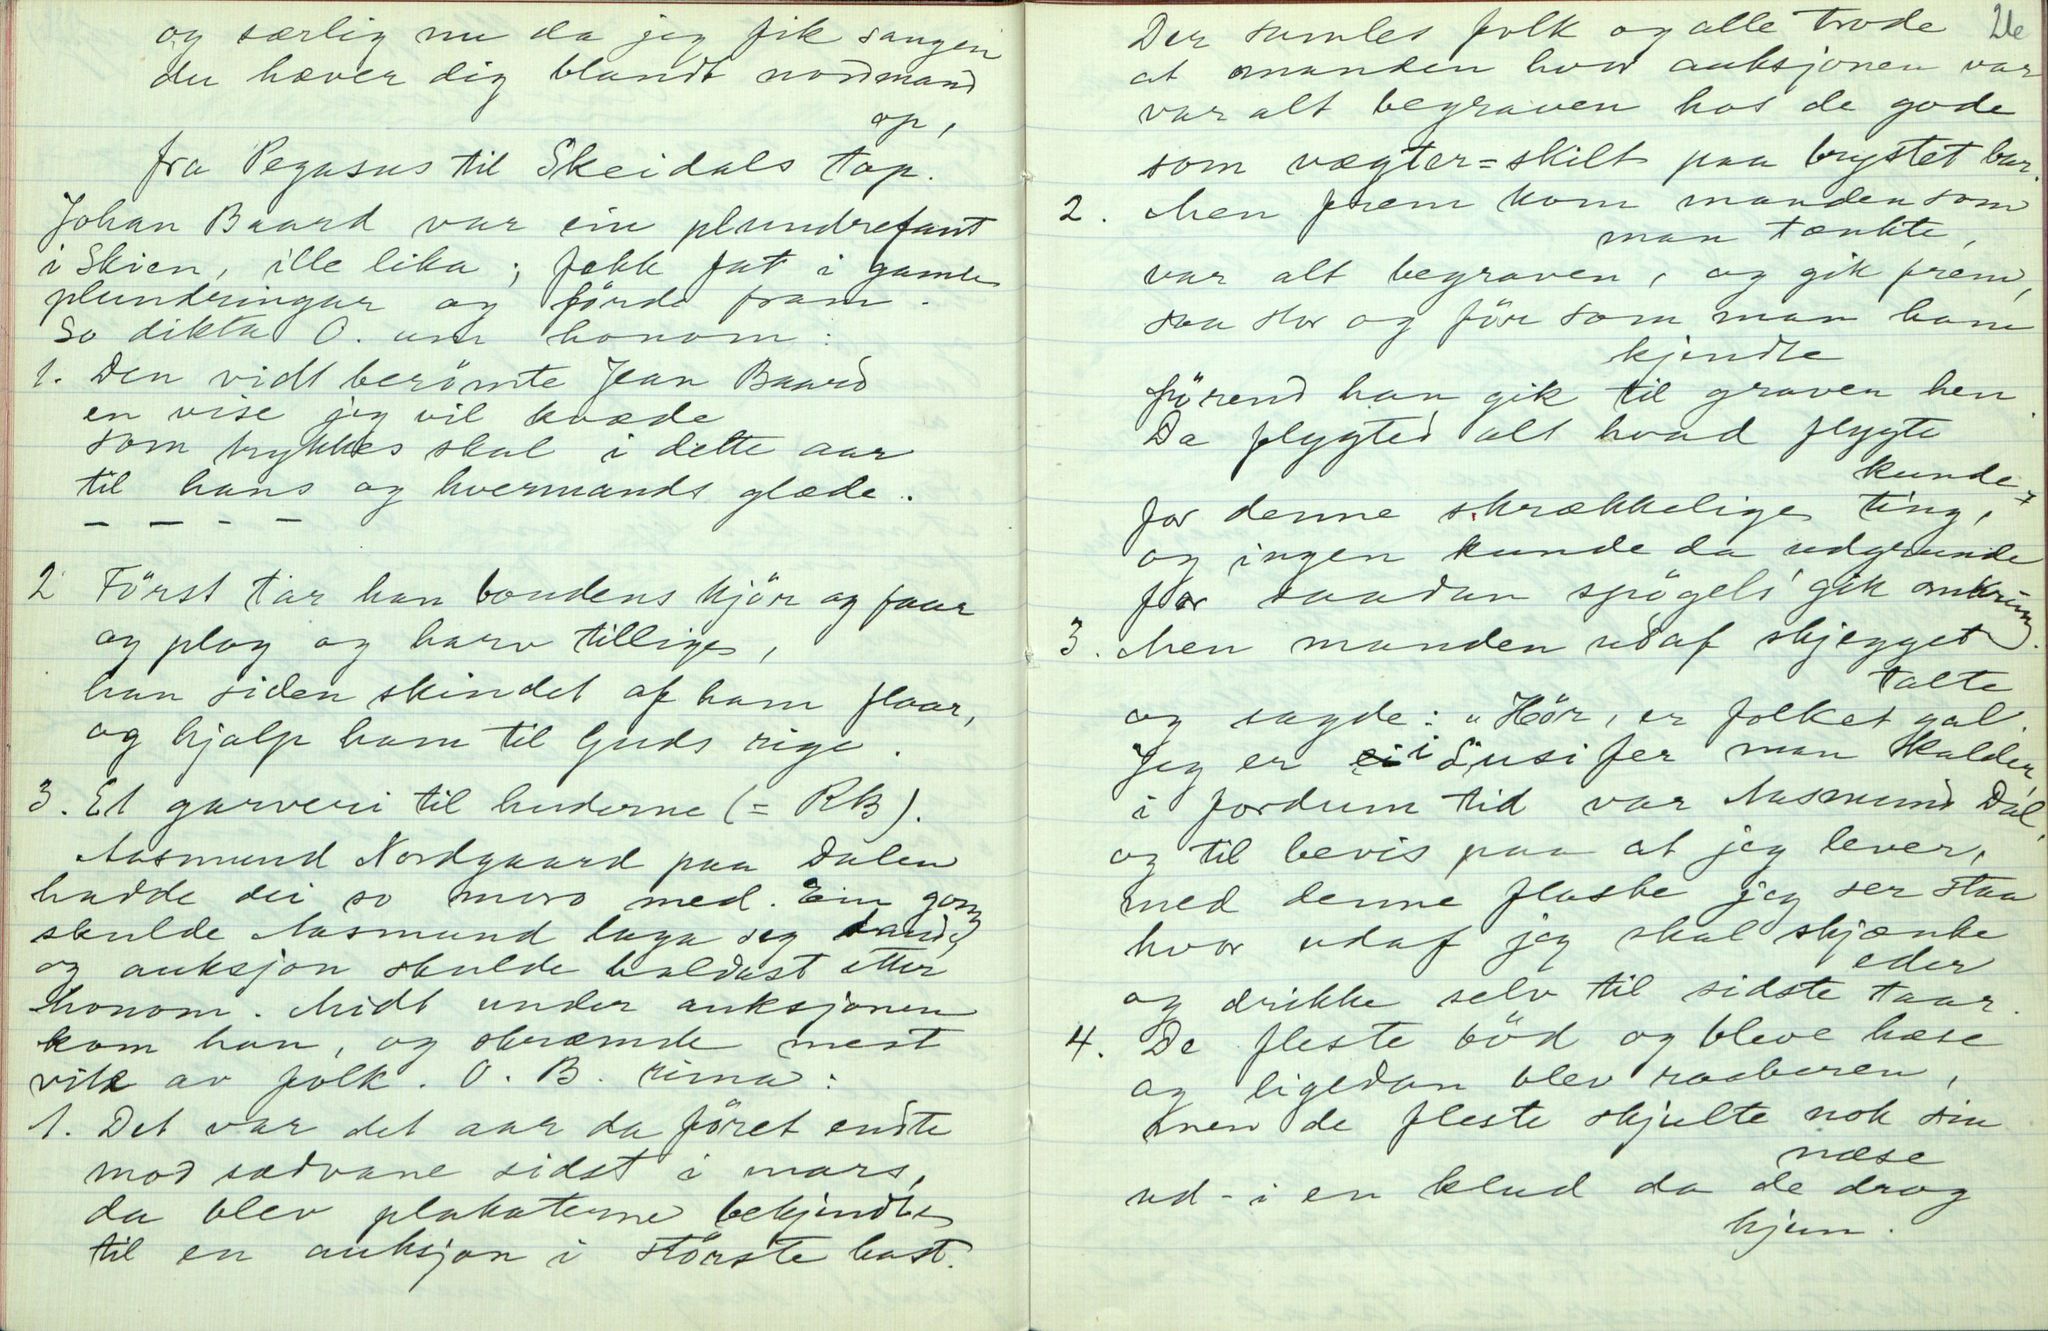 og særlig nu da jeg fik sangen
du hæver dig blandt nordmænd
op,
fra Pegasus til Skeidals top.
Johan Baard var ein plundrefant
i Skien, ille lika; fekk fat i gamle
plundringar og förde fram.
So dikta O. um honom:
1. Den vidt berömte Jean Baard
en vise jeg vil kvæde
som trykkes skal i dette aar
til hans og hvermands glæde.
– – – –
2 Först tar han bondens kjör og faar
og plog og harv tillige,
han siden skindet af ham flaar,
og hjalp ham til Guds rige.
3. Et garveri til huderne (= RB).
Aasmund Nordgaard paa Dalen
hadde dei so moro med. Ein gong
skulde Aasmund laga seg daud,
og auksjon skulde haldast etter
honom. Midt under auksjonen
kom han, og skræmde mest
vite av folk. O. B. rima:
1. Det var det aar da föret endte
mod sædvane sidst i mars,
da blev plakaterne bekjendte
til en auksjon i störste hast.
26
Der samles folk og alle trode
at manden hvor auksjonen var
var alt begraven hos de gode
som vægter=skilt paa brystet bar.
2. Men frem kom manden som
man tænkte,
var alt begraven, og gik frem,
saa stor og för som man ham
kjendte
förend han gik til graven hen.
Da flygted alt hvad flygte
kunde
for denne skrækkelige ting,
og ingen kunde da udgrunde
for saadan spögels' gik omkring.
3. Men manden udaf skjegget
talte
og sagde: "Hör, er folket gal.
Jeg er i Lusifer man kalder,
i fordum tid var Aasmund Dal,
og til bevis paa at jeg lever,
med denne flaske jeg ser staa
hvor udaf jeg skal skjænke
eder
og drikke selv til sidste taar.
4. De fleste böd og bleve hæse
og ligedan blev raaberen,
men de fleste skjulte nok sin
næse
ud- i en klud da de drog
hjem.